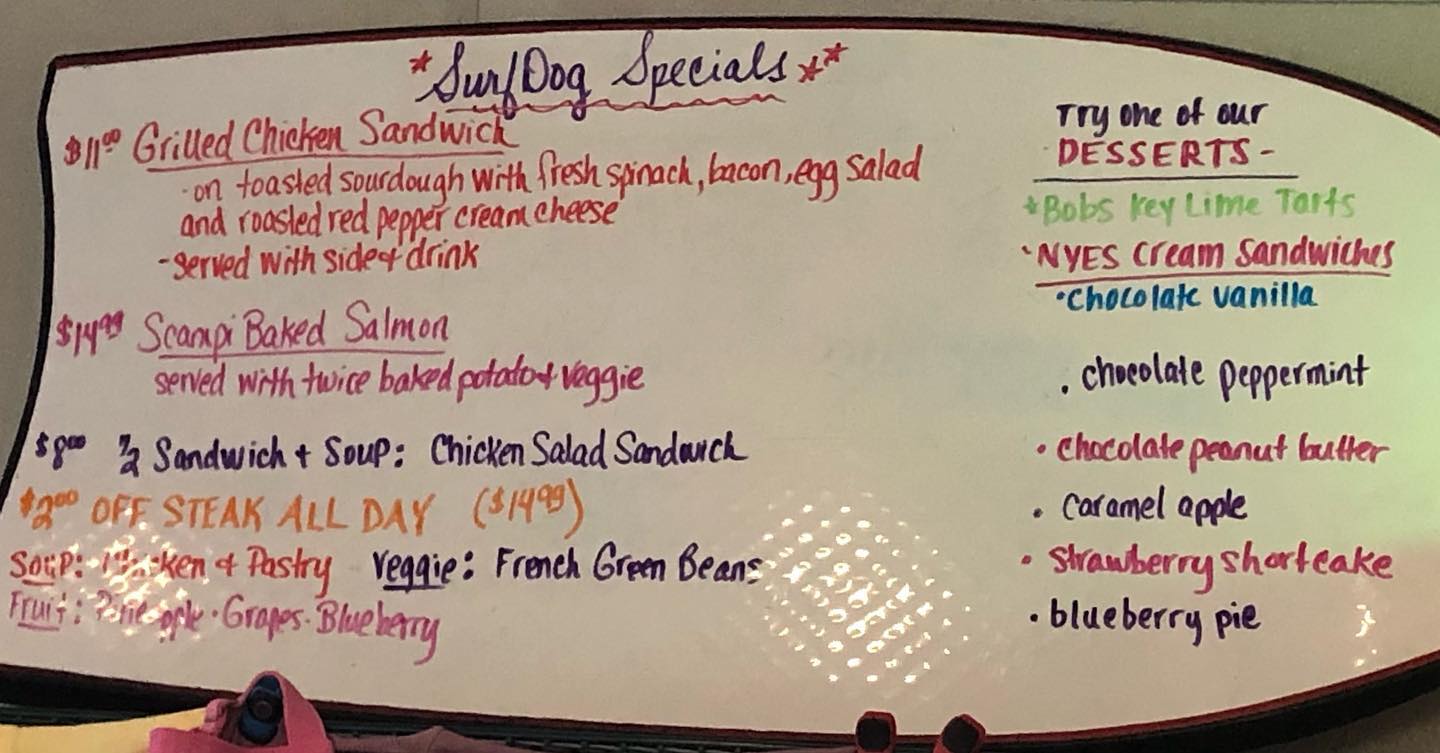 *SurfDog Specials**
$11.00 Grilled Chicken Sandwich
-on toasted sourdough with fresh spinach, bacon, egg salad
and roasted red pepper cream cheese
-served with side & drink
$14.99 Scampi Baked Salmon
served with twice baked potato & veggie
$8.00 1/2 Sandwich + Soup: Chicken Salad Sandwich
$2.00 OFF STEAK ALL DAY ($14.99)
Soup: Chicken & Pastry Veggie: French Green Beans
Fruit: Pineapple · Grapes · Blueberry
Try one of our
DESSERTS-
*Bobs Key Lime Tarts
·NYES Cream Sandwiches
·Chocolate vanilla
·chocolate peppermint
·chocolate peanut butter
·caramel apple
·strawberry shortcake
·blueberry pie